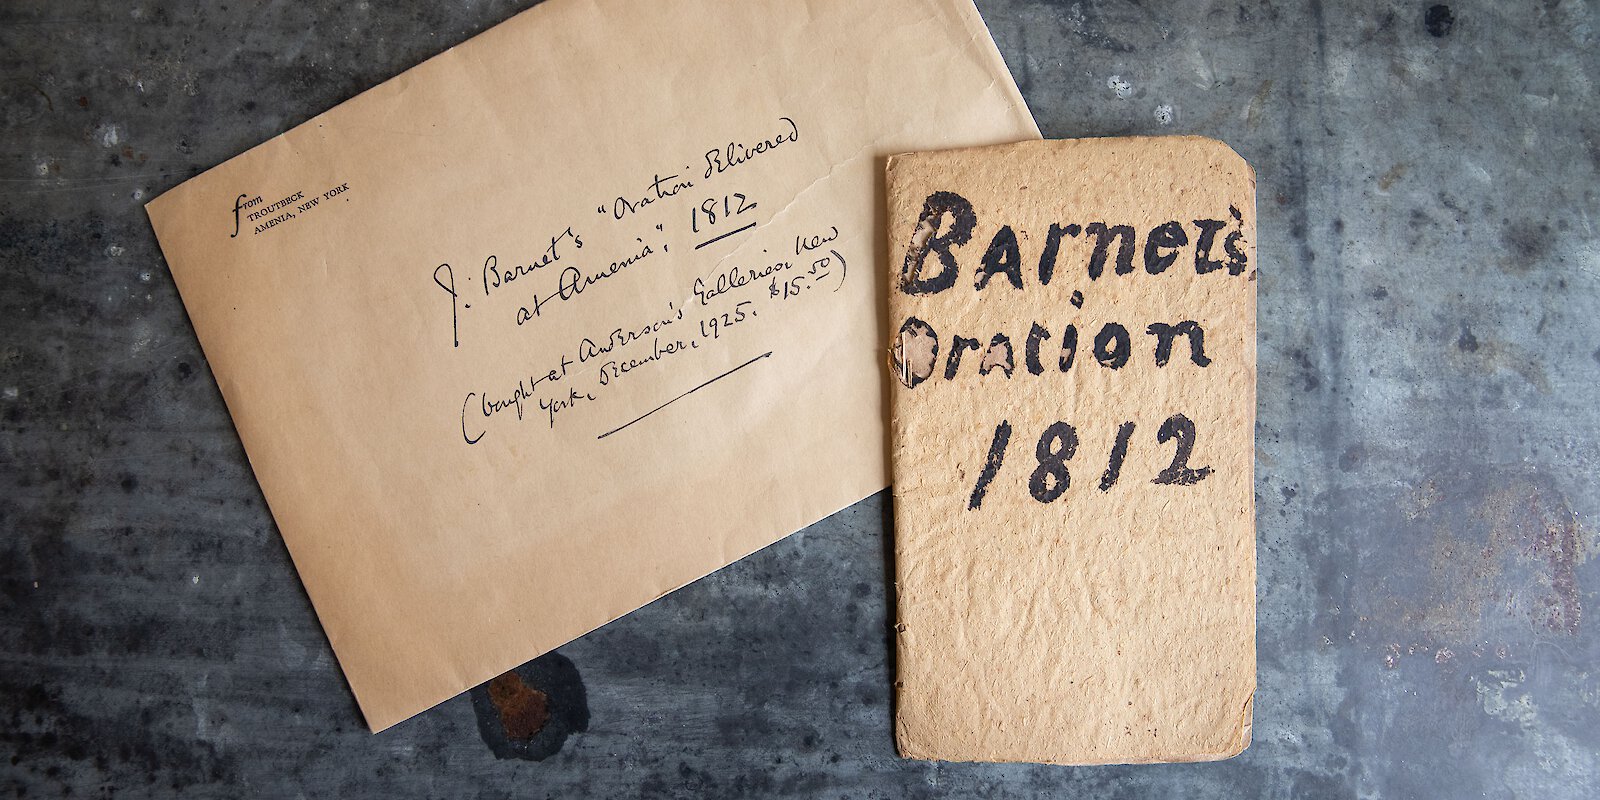 from
TROUTBECK
AMENIA, NEW YORK
J. Barnet's "Oration delivered
at Amenia", 1812
(bought at Anderson's Galleries, New
York, December, 1925. $15.50)
Barnet's
Oration
1812